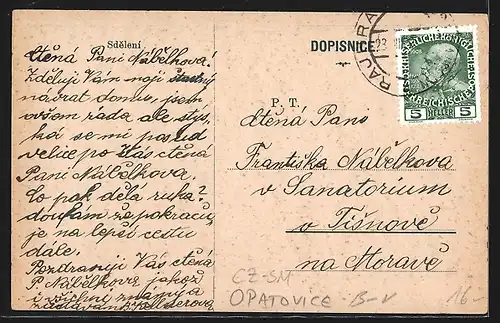 Sdělení
ctěná Paní Nábělková!
Zděluji Vám můj šťastný
návrat domu, jsem
ovšem rada ale stýs-
ká se mi posud
velice po Vás ctěná
Paní Nábělkova.
Co pak dělá ruka?
doufám za pokracu
je na lepší cestu
dále.
Pozdravuji Vás ctěná
P. Nábělkova jakož
i všechny známé a
zustavam
DOPISNICE.
RAJ
23
5 HELLER 5
P. T.
ctěná Pano
Františka Nábělkova
v Sanatorium
v Tišnově
na Moravě
CZ-SM
OPATOVICE B-V
16-